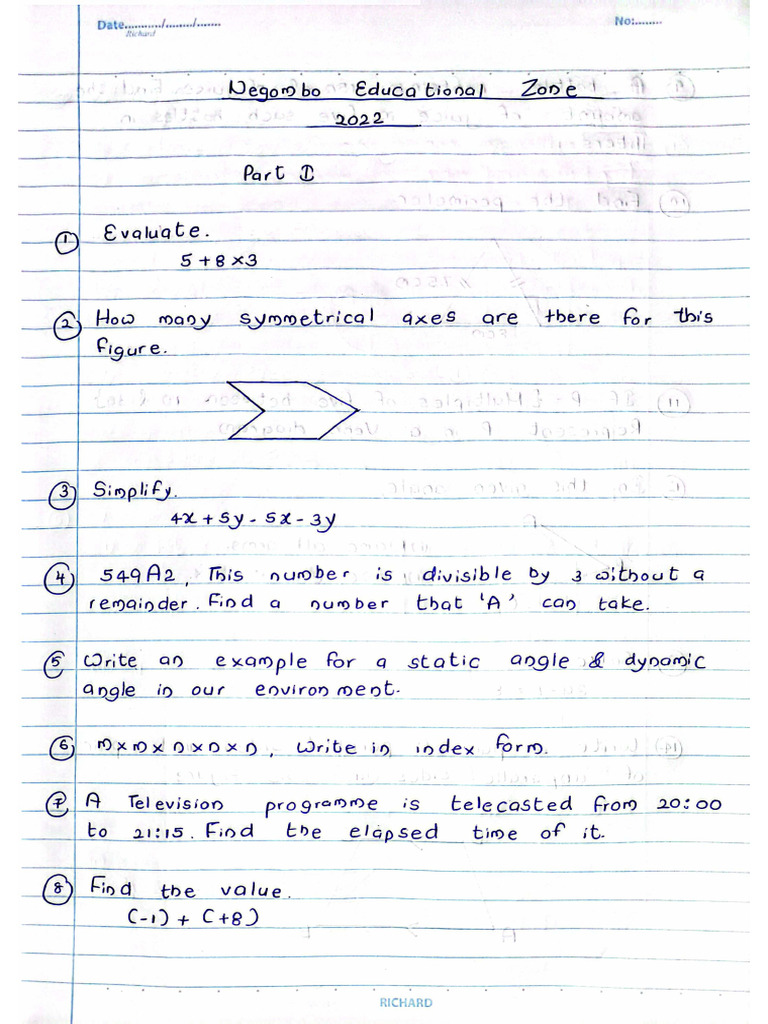 Date.........../......../........
No:........
Richard
Negombo Educational Zone
2022
Part I
① Evaluate.
5 + 8 × 3
② How many symmetrical axes are there for this
figure.
③ Simplify.
4x + 5y - 5x - 3y
④ 549A2, This number is divisible by 3 without a
remainder. Find a number that 'A' can take.
⑤ Write an example for a static angle & dynamic
angle in our environment.
⑥ m × m × n × n × n, Write in index form.
⑦ A Television programme is telecasted from 20:00
to 21:15. Find the elapsed time of it.
⑧ Find the value.
(-1) + (+8)
RICHARD